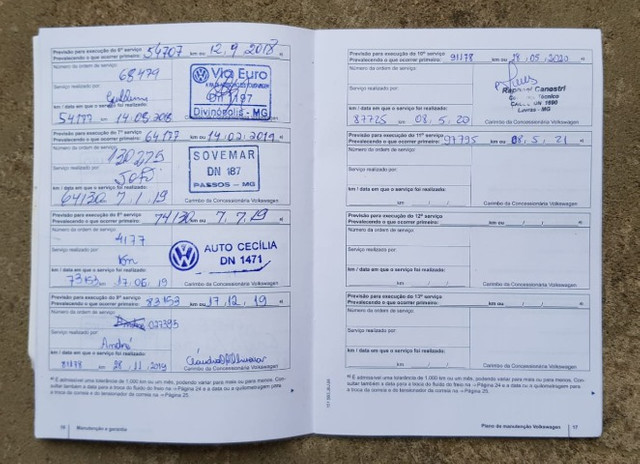 Previsão para execução do 6º serviço
Prevalecendo o que ocorrer primeiro: 54707 km ou 12.9.2018
Número da ordem de serviço:
68479
Serviço realizado por:
Guilherme
km / data em que o serviço foi realizado:
54177 km 14.08.2018
Via Euro
DN 1187
Divinópolis - MG
Carimbo da Concessionária Volkswagen
Previsão para execução do 7º serviço
Prevalecendo o que ocorrer primeiro: 64177 km ou 14.02.2019
Número da ordem de serviço:
130275
Serviço realizado por:
km / data em que o serviço foi realizado:
64130 7.1.19
SOVEMAR
DN 187
PASSOS - MG
Carimbo da Concessionária Volkswagen
Previsão para execução do 8º serviço
Prevalecendo o que ocorrer primeiro: 74130 km ou 7.7.19
Número da ordem de serviço:
4177
Serviço realizado por:
km / data em que o serviço foi realizado:
73153 km 17.06.19
AUTO CECÍLIA
DN 1471
Carimbo da Concessionária Volkswagen
Previsão para execução do 9º serviço
Prevalecendo o que ocorrer primeiro: 83153 km ou 17.12.19
Número da ordem de serviço:
027393
Serviço realizado por:
André
km / data em que o serviço foi realizado:
81178 km 28.11.2019
Carimbo da Concessionária Volkswagen
É admissível uma tolerância de 1.000 km ou um mês, podendo variar para mais ou para menos. Con-
sultar também a data para a troca do fluido do freio na ⇒Página 24 e a data ou a quilometragem para
a troca da correia de distribuição e do tensionador da correia na ⇒Página 25.
16 Manutenção e garantia
Previsão para execução do 10º serviço
Prevalecendo o que ocorrer primeiro: 91178 km ou 28.05.2020
Número da ordem de serviço:
Serviço realizado por:
km / data em que o serviço foi realizado:
87725 km 08.5.20
Canestri
Técnico
Lavras - MG
Carimbo da Concessionária Volkswagen
Previsão para execução do 11º serviço
Prevalecendo o que ocorrer primeiro: 97795 km ou 08.5.21
Número da ordem de serviço:
Serviço realizado por:
km / data em que o serviço foi realizado:
km / /
Carimbo da Concessionária Volkswagen
Previsão para execução do 12º serviço
Prevalecendo o que ocorrer primeiro: km ou / /
Número da ordem de serviço:
Serviço realizado por:
km / data em que o serviço foi realizado:
km / /
Carimbo da Concessionária Volkswagen
Previsão para execução do 13º serviço
Prevalecendo o que ocorrer primeiro: km ou / /
Número da ordem de serviço:
Serviço realizado por:
km / data em que o serviço foi realizado:
km / /
Carimbo da Concessionária Volkswagen
É admissível uma tolerância de 1.000 km ou um mês, podendo variar para mais ou para menos. Con-
sultar também a data para a troca do fluido do freio na ⇒Página 24 e a data ou a quilometragem para
a troca da correia de distribuição e do tensionador da correia na ⇒Página 25.
Plano de manutenção Volkswagen 17